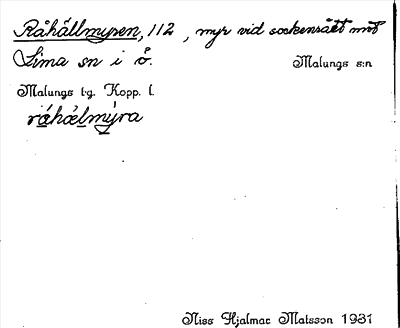 Råhållmyren, 112, myr vid sockenrået mot
Lima sn i ö.
Malungs s:n
Malungs t.g. Kopp. l.
råhålmýra
Niss Hjalmar Matsson 1931